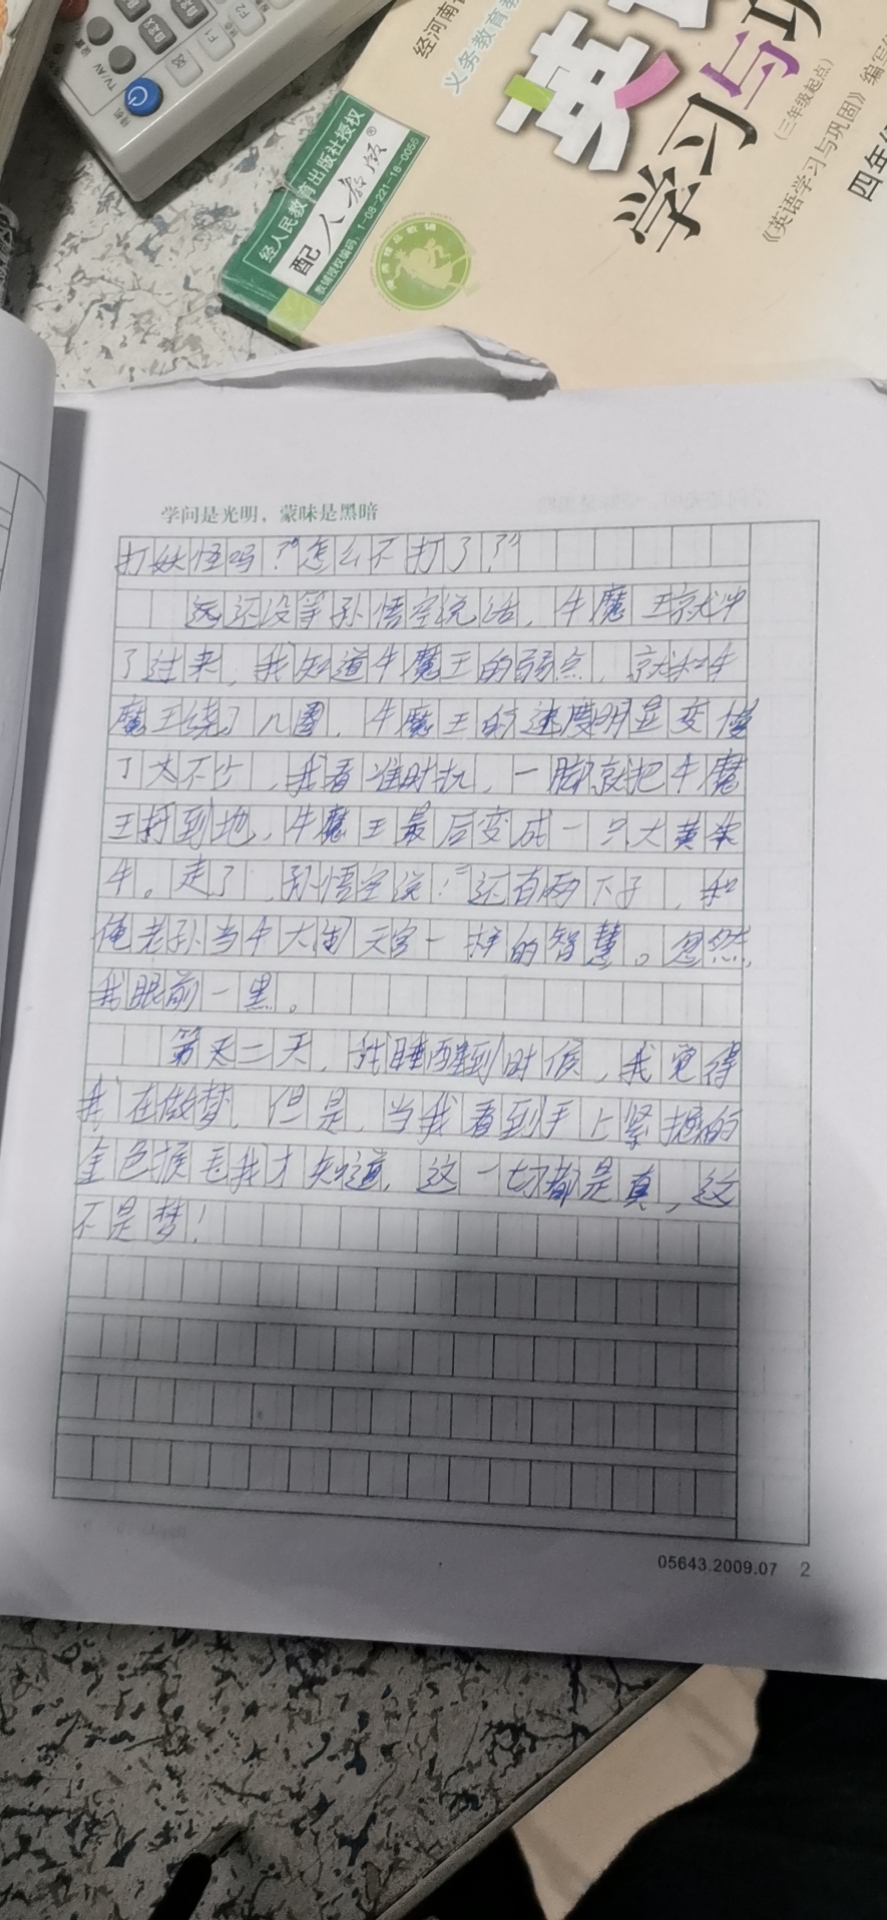 待机
TV/AV
F1
F2
经河南省
义务教育教
英
学习与巩
(三年级起点)
《英语学习与巩固》编写
四年
经人民教育出版社授权
配人教版®
教辅授权编码：1-08-221-18-0056
学问是光明，蒙昧是黑暗
打妖怪吗？”怎么不打了？”
还没等孙悟空说话，牛魔王就冲
了过来，我知道牛魔王的弱点，就和牛
魔王绕了几圈，牛魔王的速度明显变慢
了不少，我看准时机，一脚就把牛魔
王打到地，牛魔王最后变成一只大黄
牛。走了，孙悟空说：“还有两下子，和
俺老孙当年大闹天宫一样的智慧。忽然，
我眼前一黑。
第二天，我睡醒到时候，我觉得
我在做梦，但是，当我看到手上紧握的
金色猴毛我才知道，这一切都是真，这
不是梦！
05643.2009.07 2